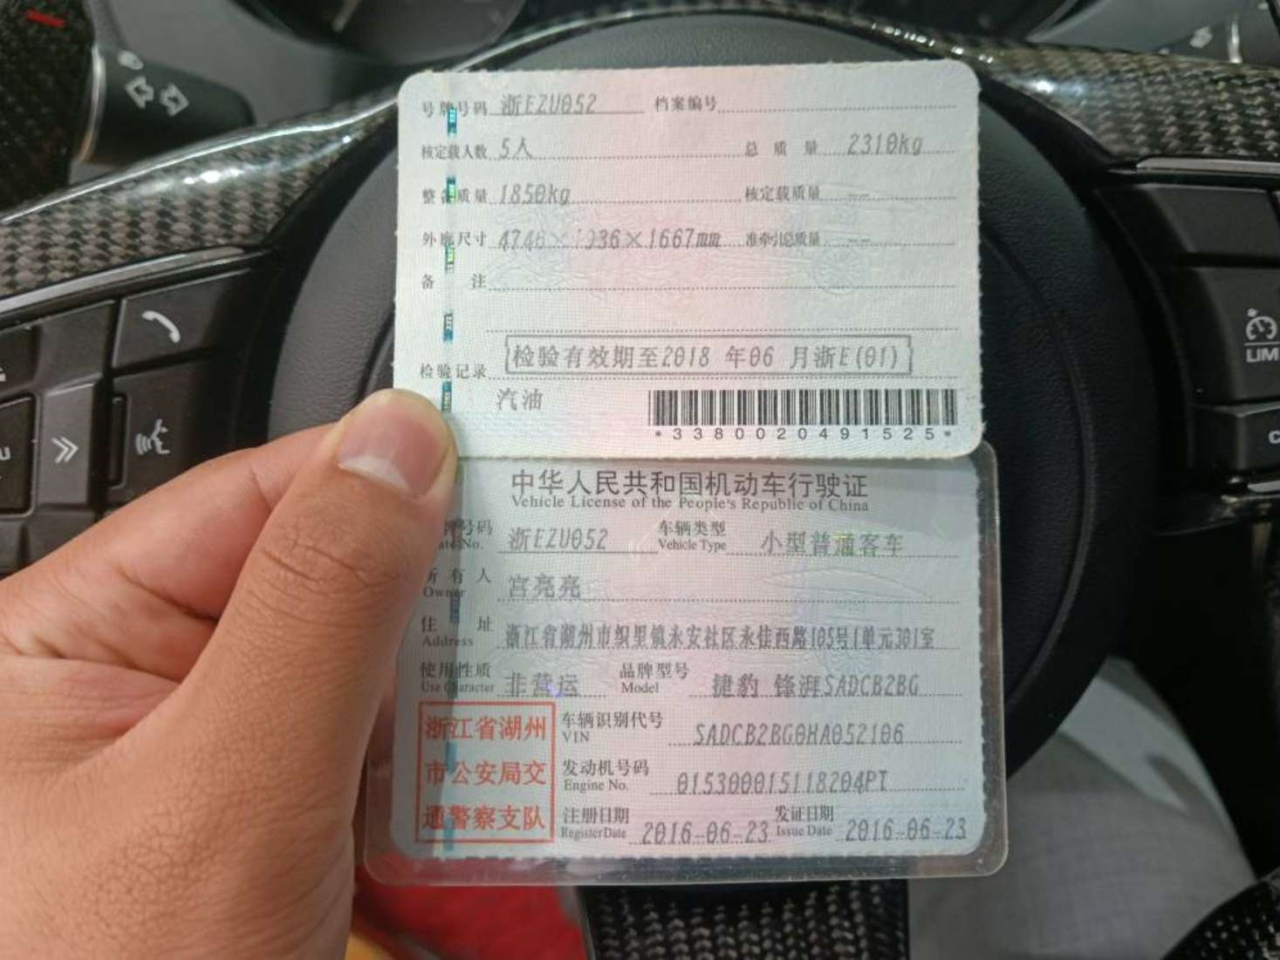 号牌号码 浙EZU052 档案编号
核定载人数 5人 总质量 2310kg
整备质量 1850kg 核定载质量 --
外廓尺寸 4746×1936×1667mm 准牵引总质量 --
备注
检验记录 检验有效期至2018 年06 月浙E(01)
汽油
*3380020491525*
中华人民共和国机动车行驶证
Vehicle License of the People's Republic of China
牌号码 浙EZU052 车辆类型 小型普通客车
ate No. Vehicle Type
所有人 宫亮亮
Owner
住址 浙江省湖州市织里镇永安社区永佳西路105号1单元301室
Address
使用性质 非营运 品牌型号 捷豹 锋湃SADCB2BG
Use Character Model
浙江省湖州 车辆识别代号 SADCB2BG0HA052106
VIN
市公安局交 发动机号码 015300015118204PT
Engine No.
通警察支队 注册日期 2016-06-23 发证日期 2016-06-23
Register Date Issue Date
LIM